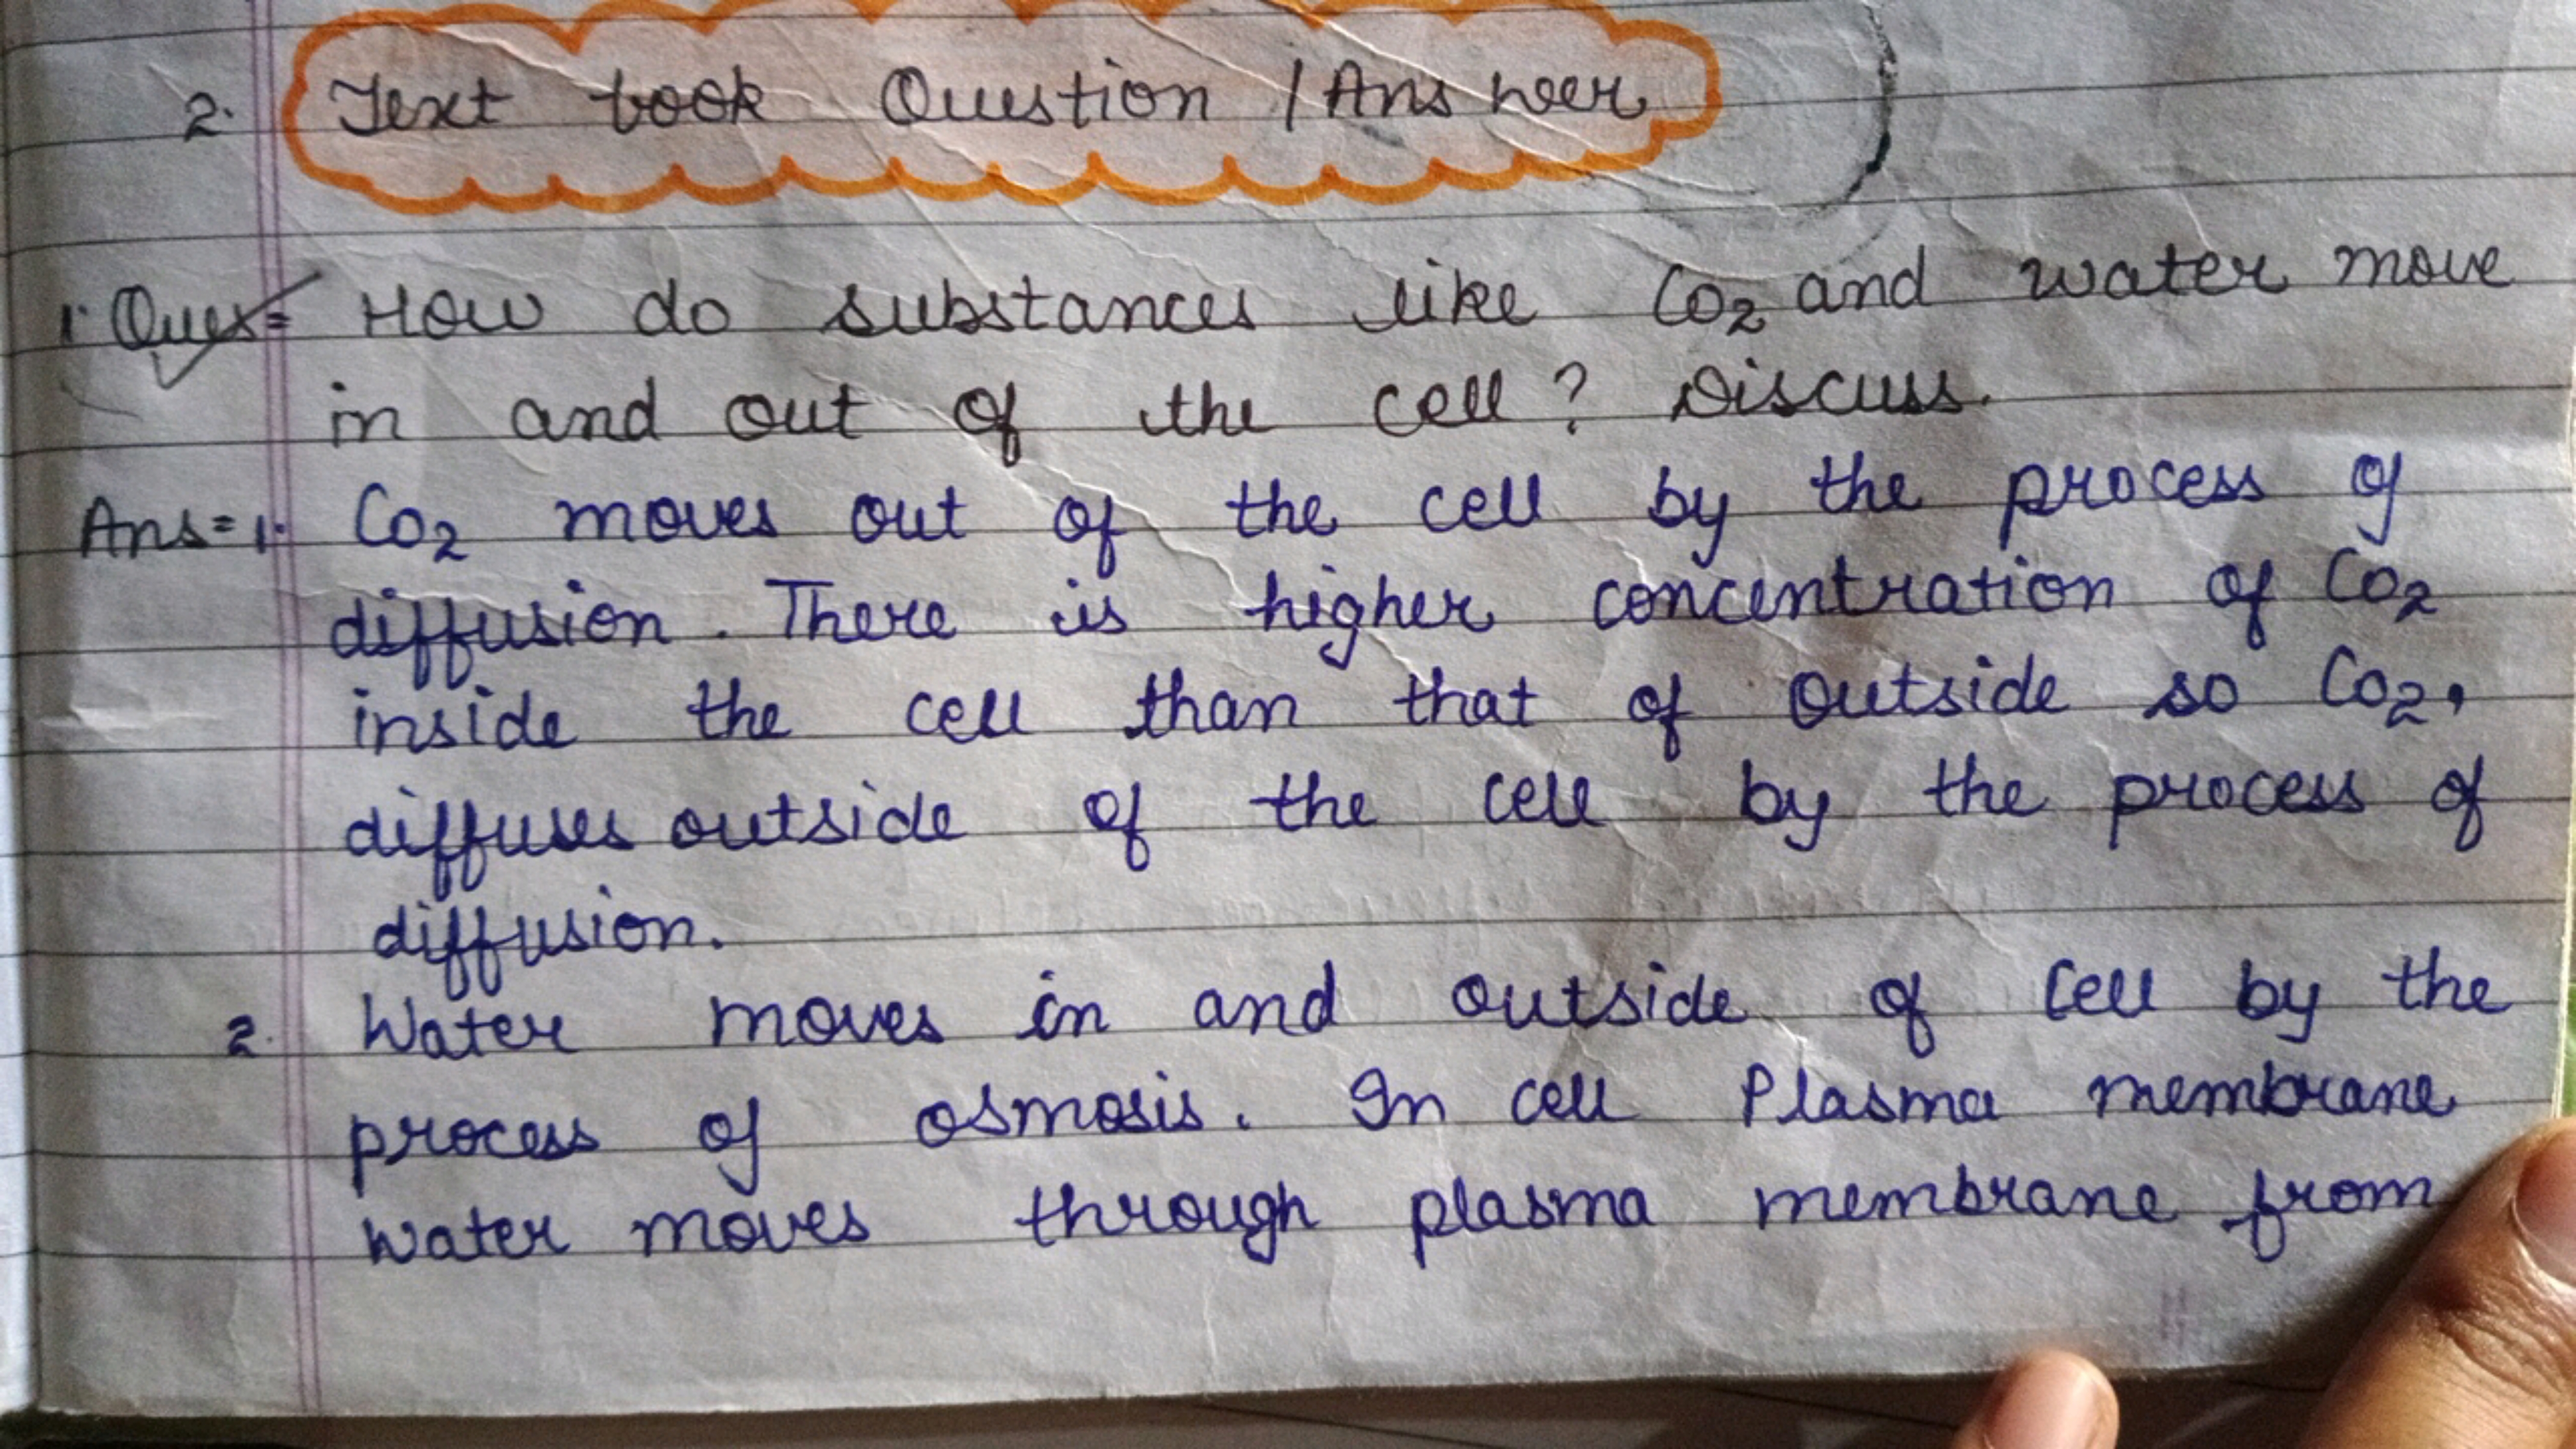 2. Text book Question / Answer
1. Ques= How do substances like Co2 and water move
in and out of the cell? Discuss.
Ans=1. Co2 moves out of the cell by the process of
diffusion. There is higher concentration of Co2
inside the cell than that of outside so Co2,
diffuses outside of the cell by the process of
diffusion.
2. Water moves in and outside of cell by the
process of osmosis. In cell Plasma membrane
water moves through plasma membrane from